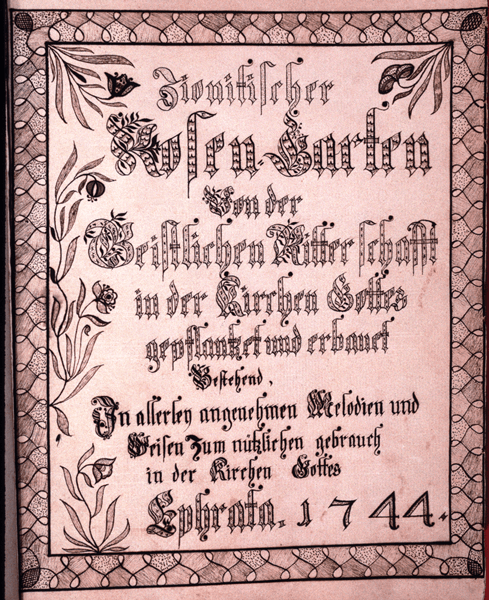 Zionitischer
Rosen-Garten
Von der
Geistlichen Ritterschafft
in der Kirchen Gottes
gepflantzet und erbauet
Bestehend,
In allerley angenehmen Melodien und
Weisen Zum nützlichen gebrauch
in der Kirchen Gottes
Ephrata. 1744.